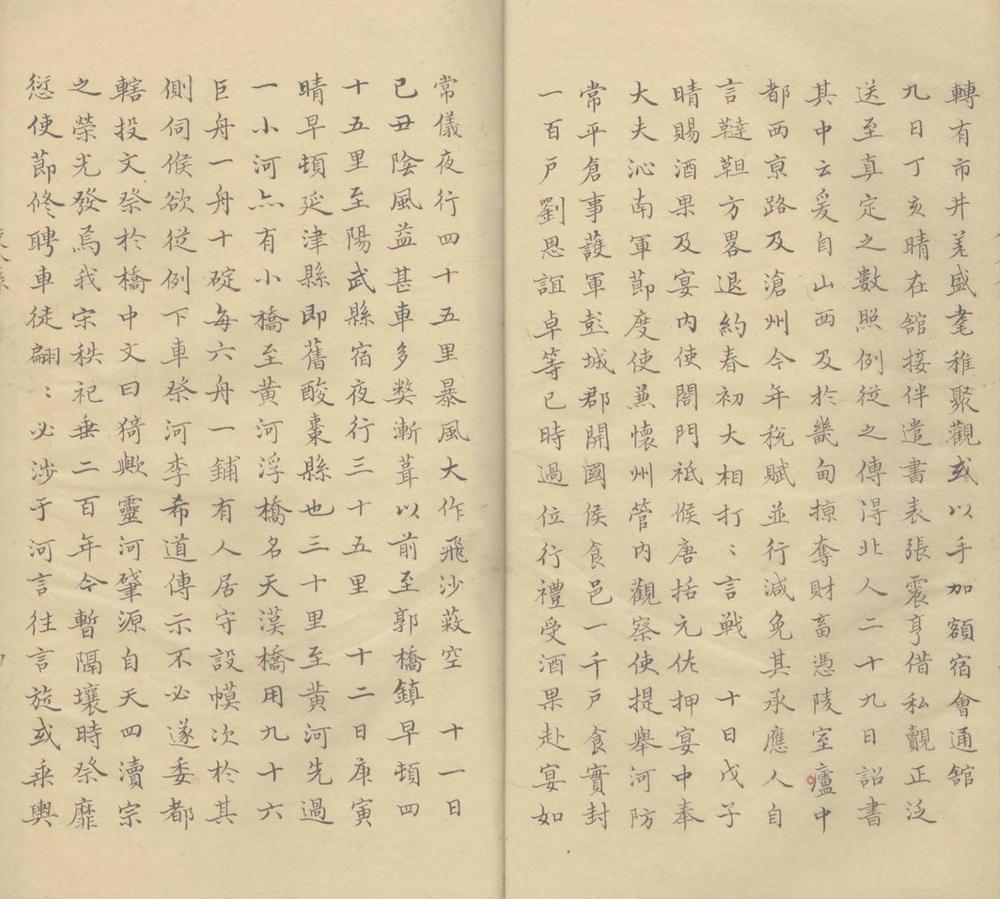 轉有市井差盛耄稚聚觀或以手加額宿會通舘
九日丁亥晴在舘接伴遣書表張震亨借私覿正泛
送至真定之數照例從之傳淂北人二十九日詔書
其中云爰自山西及於畿甸掠奪財畜憑陵室廬中
都西亰路及滄州今年稅賦並行減免其承應人自
言韃靼方畧退約春初大相打〻言戰　十日戊子
晴賜酒果及宴內使閤門祗候唐括元佐押宴中奉
大夫沁南軍莭度使蒹懷州管內觀察使提舉河防
常平倉事護軍彭城郡開國侯食邑一千戶食實封
一百戶劉思誼卓等巳時過位行禮受酒果赴宴如
常儀夜行四十五里暴風大作飛沙蔽空　十一日
己丑陰風益甚車多獘漸葺以前至郭橋鎮早頓四
十五里至陽武縣宿夜行三十五里　十二日庚寅
晴早頓延津縣即舊酸棗縣也三十里至黃河先過
一小河亦有小橋至黃河浮橋名天漢橋用九十六
巨舟一舟十碇每六舟一鋪有人居守設幙次於其
側伺候欲從例下車祭河李希道傳示不必遂委都
轄投文祭於橋中文曰猗歟靈河肇源自天四瀆宗
之榮光發焉我宗秩祀垂二百年今暫隔壤時祭靡
愆使莭修聘車徒翩〻必涉于河言往言旋或乘輿